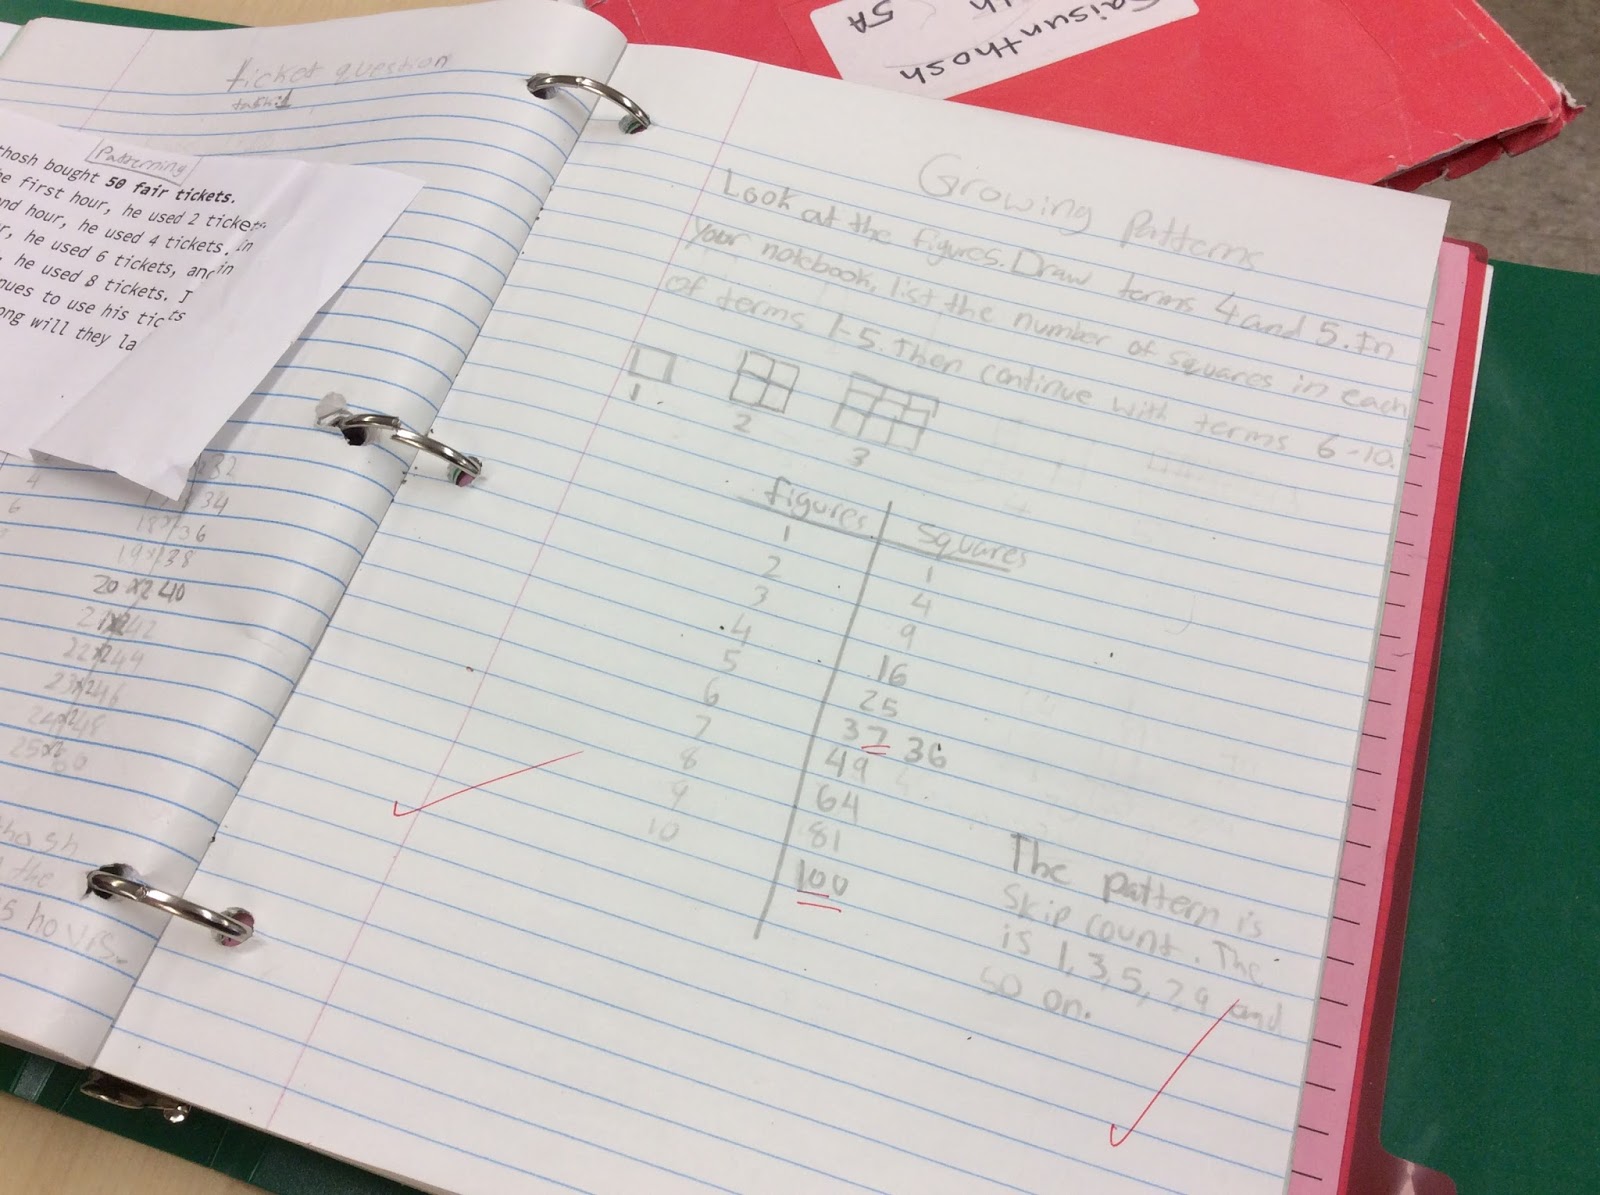 Saisunthosh
5A
ticket question
task:1
Patterning
thosh bought 50 fair tickets.
he first hour, he used 2 tickets
nd hour, he used 4 tickets. In
r, he used 6 tickets, and in
, he used 8 tickets. I
nues to use his tic ts
ong will they la
4 32
6 34
18x 36
19x 38
20 x2 40
21 x2 42
22 x2 44
23 x2 46
24 x2 48
25 x2 50
hosh
the
5 hours.
Growing Patterns
Look at the figures. Draw terms 4 and 5. In
your notebook, list the number of squares in each
of terms 1-5. Then continue with terms 6-10.
1 2 3
4
figures squares
1 1
2 4
3 9
4 16
5 25
6 37 36
7 49
8 64
9 81
10 100
The pattern is
skip count. The
is 1, 3, 5, 7, 9 and
so on.